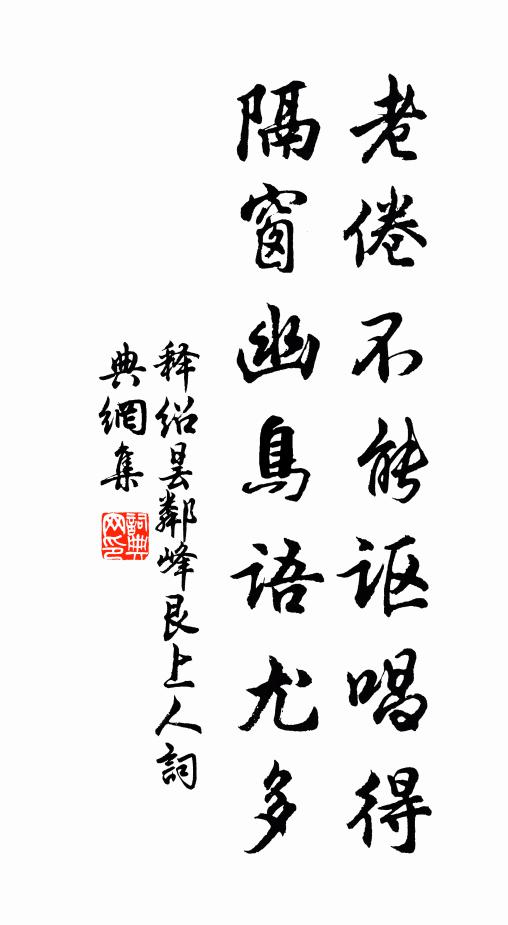 老倦不能讴唱得
隔窗幽鳥語尤多
释绍昙鄰峰艮上人詞
典網集
詞典
网印